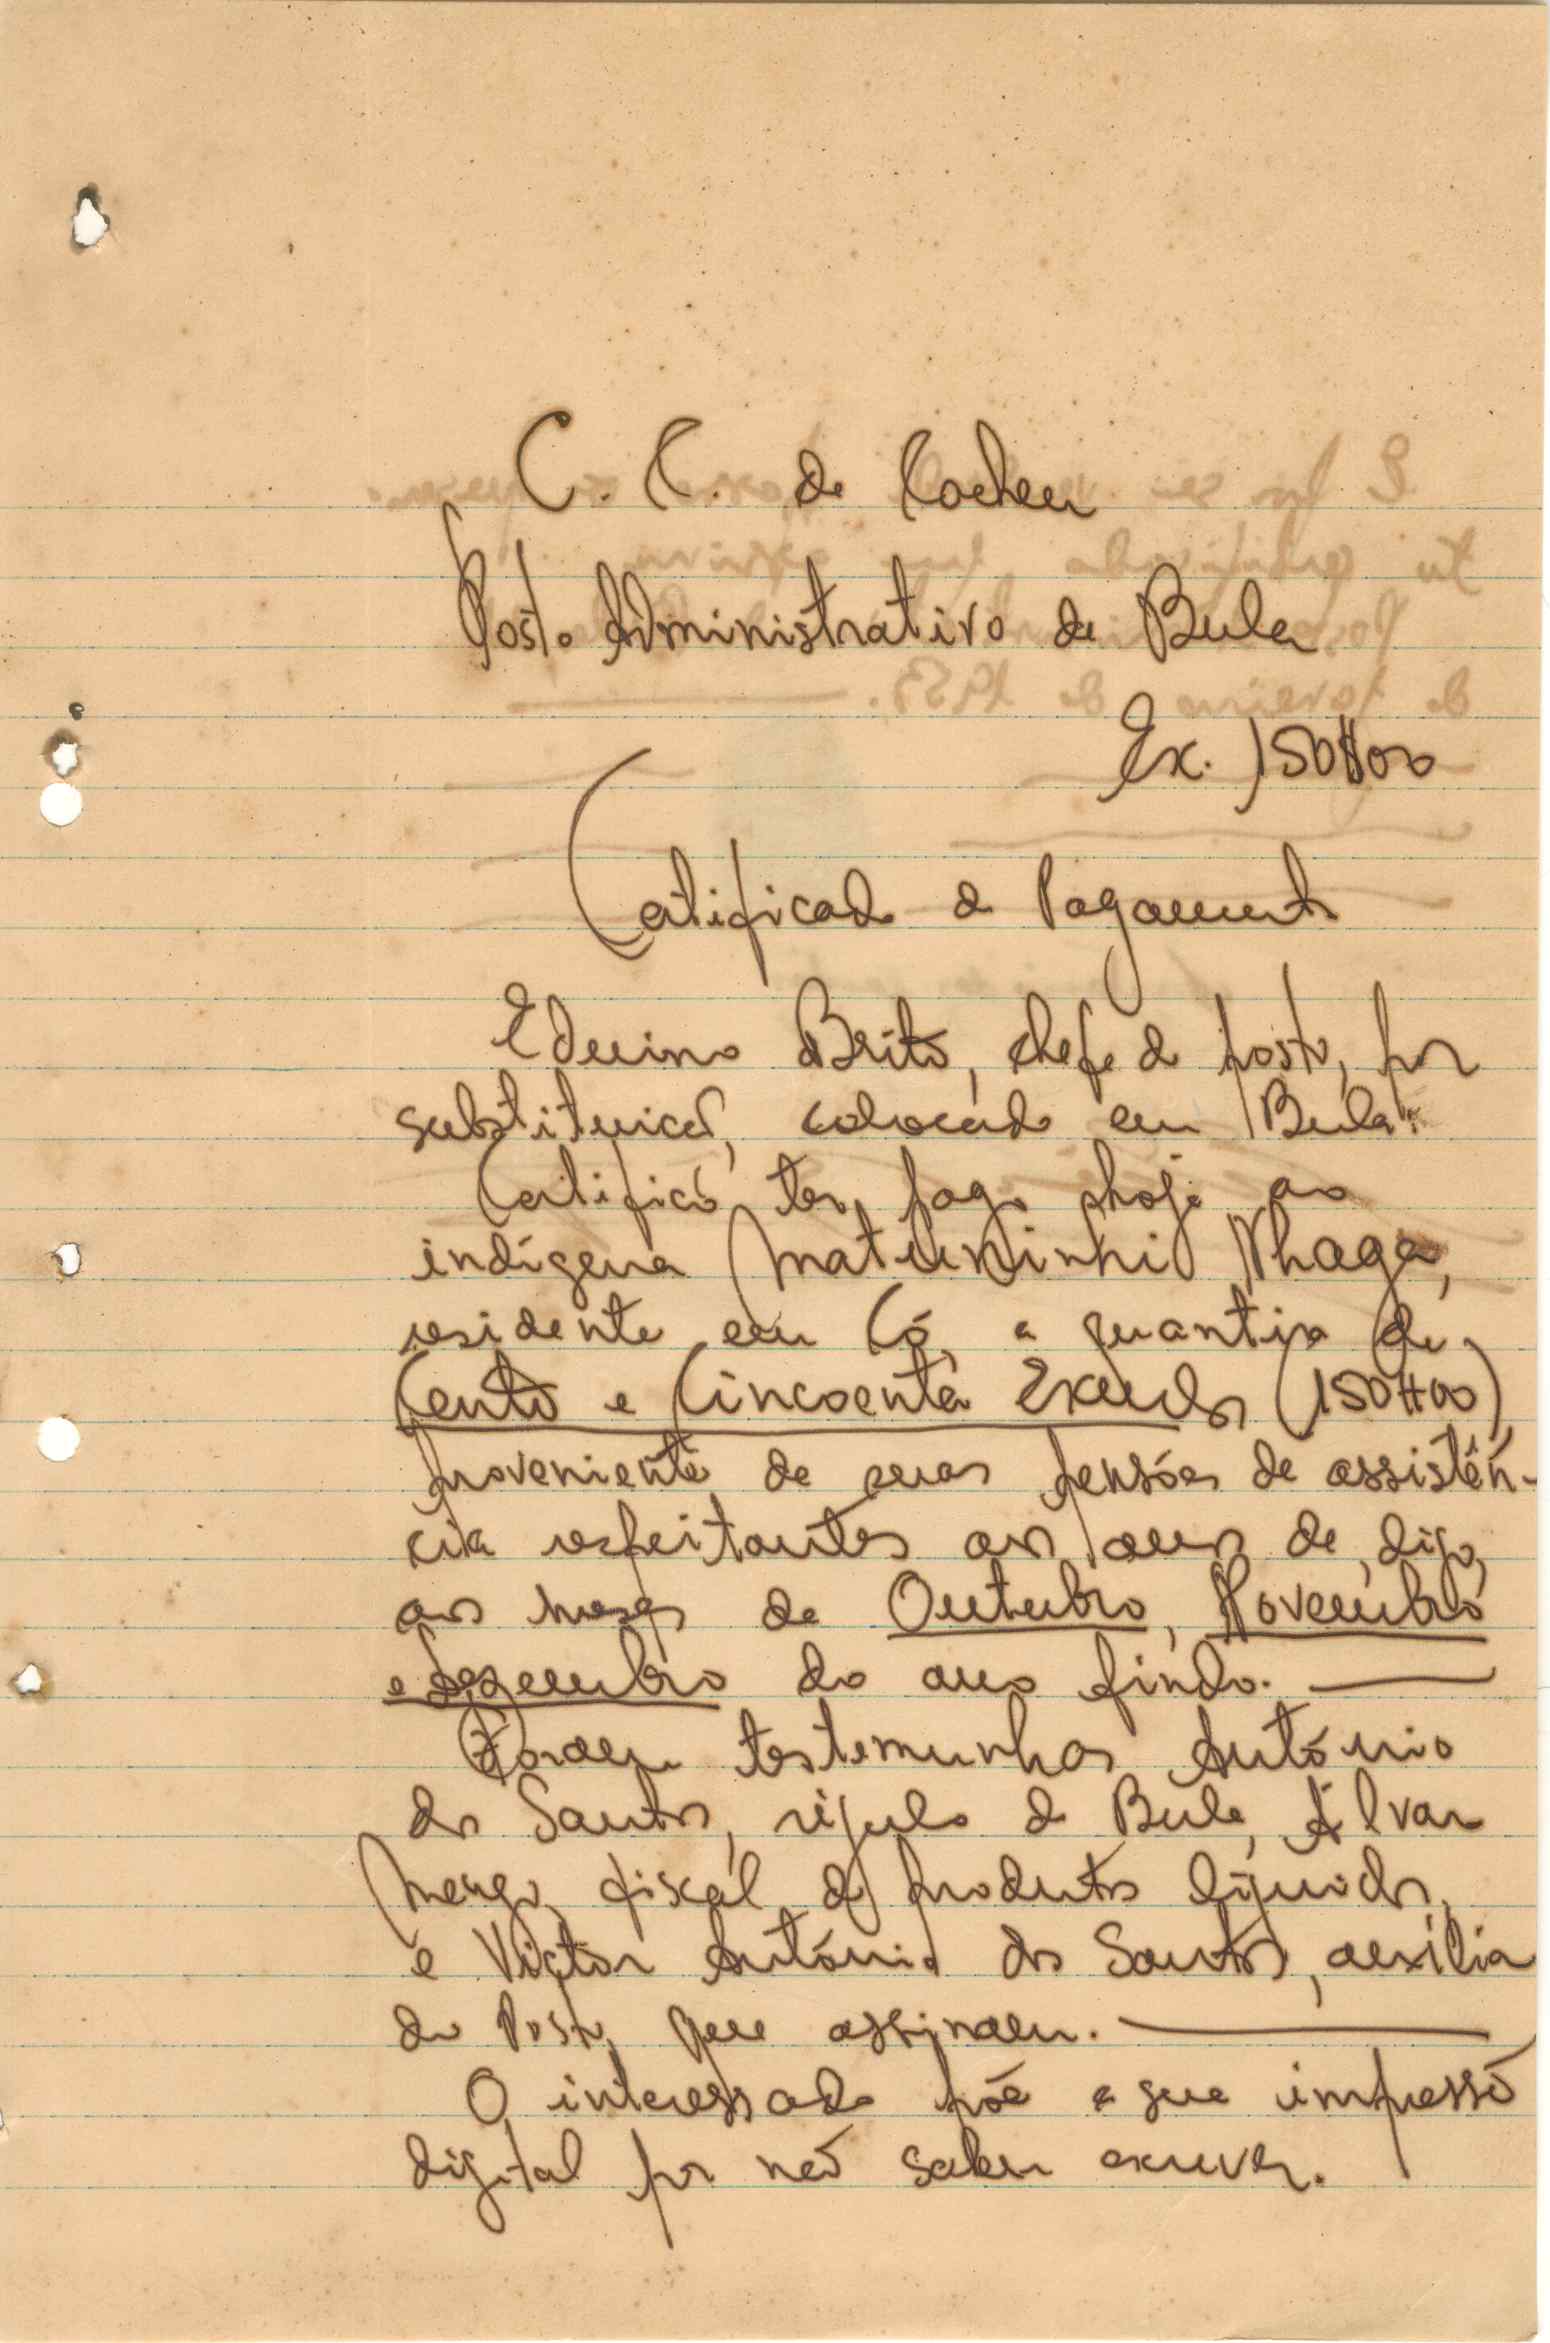 C. C. de Cacheu
Posto Administrativo de Bula
Ex. 150$00
Certificado de Pagamento
Eduino Brito, chefe de posto, por
substituição, colocado em Bula:
Certifico ter pago hoje ao
indígena Matuninhi Nhaga,
residente em Có, a quantia de
Cento e Cincoenta Escudos (150$00),
proveniente de suas pensões de assistên-
cia respeitantes aos anos de, digo,
aos meses de Outubro, Novembro
e Dezembro do ano findo.
Foram testemunhas António
dos Santos, régulo de Bula, Álvaro
fiscal de produtos líquidos,
e Victor António dos Santos, auxiliar
do Posto, que assinam.
O interessado põe a sua impressão
digital por não saber escrever.